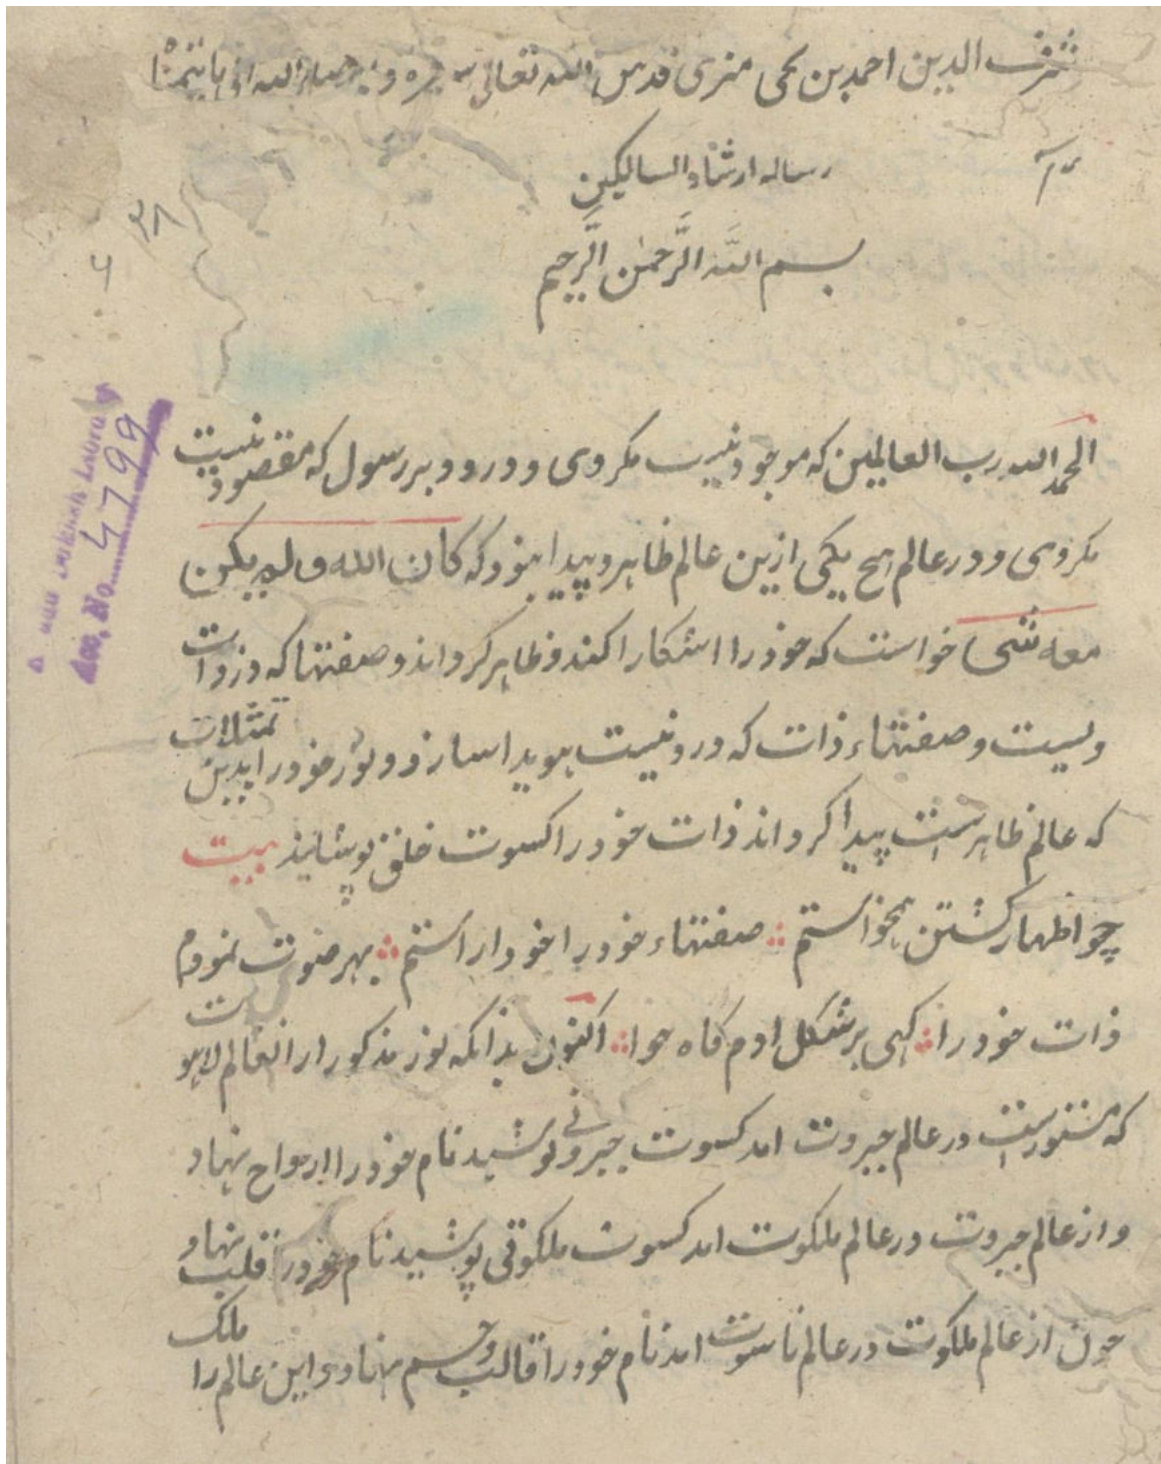 شرف الدین احمد بن یحی منری قدس الله تعالی سره و
رساله ارشاد السالکین
بسم الله الرحمن الرحیم
۳۸
۶
Acc. No. 4799
الحمد لله رب العالمین که موجود نیست مکروی و درود بر رسول که مقصود نیست
مکروی و در عالم هیچ یکی ازین عالم ظاهر و پیدا نبود که کان الله و لم یکن
معه شی خواست که خود را اشکارا کند و ظاهر کرداند و صفتها که در ذات
ویست و صفتهاء ذات که درو نیست هویدا سازد و نور خود را بدین تمثلات
که عالم ظاهرست پیدا کرداند ذات خود را کسوت خلق پوشانید بیت
چو اظهار کشتن همی خواستم صفتهاء خود را خود اراستم بهر صورت نمودم
ذات خود را کهی بر شکل ادم کاه حوا اکنون بدانکه نور مذکور از العالم لاهوت
که مستورست در عالم جبروت امد کسوت جبروتی پوشید نام خود را ارواح نهاد
و از عالم جبروت در عالم ملکوت امد کسوت ملکوتی پوشید نام خود را قلب نهاد و
چون از عالم ملکوت در عالم ناسوت امد نام خود را قالب و جسم نهاد و این عالم را ملک